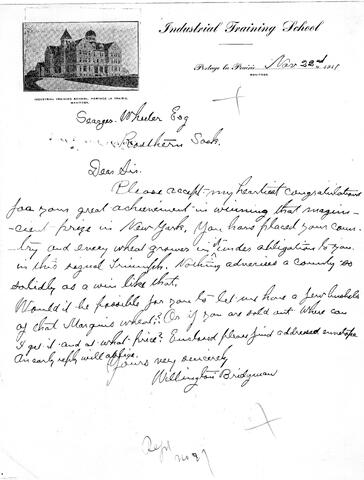 Industrial Training School
Portage la Prairie Nov 22nd 1911
MANITOBA
INDUSTRIAL TRAINING SCHOOL, PORTAGE LA PRAIRIE,
MANITOBA.
Seager Wheeler Esq
Rosthern Sask.
Dear Sir.
Please accept my heartiest congratulations
for your great achievement in winning that magni-
cient prize in New York. You have placed your coun-
try and every wheat grower in it under obligation to you
in this signal Triumph. Nothing advertises a country so
solidly as a win like that.
Would it be possible for you to let us have a few bushels
of that Marquis wheat? Or if you are sold out where can
I get it and at what price? Enclosed please find addressed envelope
An early reply will oblige.
Yours very sincerely
Willington Bridgman
Repd